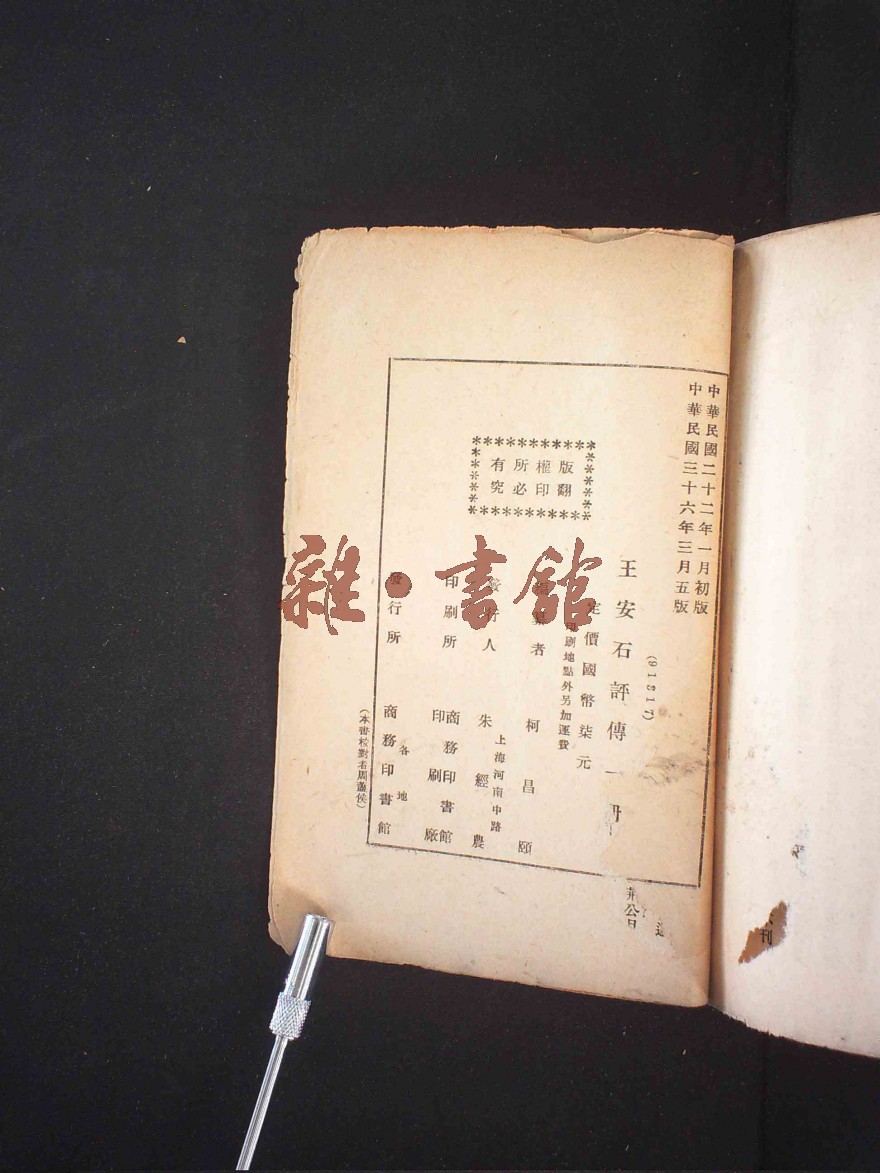 中華民國二十二年一月初版
中華民國三十六年三月五版
(91817)
王安石評傳一冊
定價國幣柒元
印刷地點外另加運費
版權所有
翻印必究
者 柯昌頤
發行人 朱經農
上海河南中路
印刷所 商務印書館
印刷廠
發行所 商務印書館
各地
(本書校對者周
雜·書館